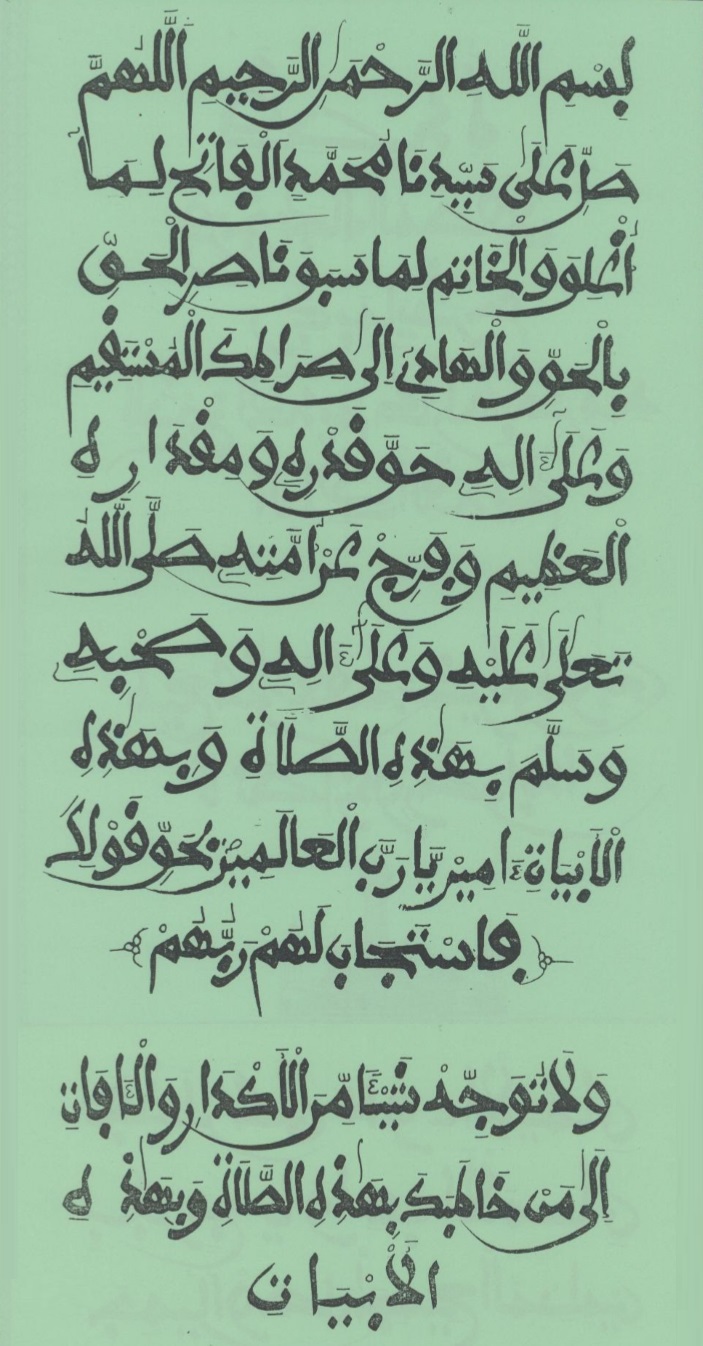 بِسْمِ اللَّهِ الرَّحْمَٰنِ الرَّحِيمِ اللَّهُمَّ
صَلِّ عَلَىٰ سَيِّدِنَا مُحَمَّدٍ الْفَاتِحِ لِمَا
أُغْلِقَ وَالْخَاتِمِ لِمَا سَبَقَ نَاصِرِ الْحَقِّ
بِالْحَقِّ وَالْهَادِي إِلَىٰ صِرَاطِكَ الْمُسْتَقِيمِ
وَعَلَىٰ ءَالِهِ حَقَّ قَدْرِهِ وَمِقْدَارِهِ
الْعَظِيمِ وَفَرِّجْ عَنْ أُمَّتِهِ صَلَّى اللَّهُ
تَعَلَىٰ عَلَيْهِ وَعَلَىٰ ءَالِهِ وَصَحْبِهِ
وَسَلَّمَ بِهَٰذِهِ الصَّلَاةِ وَبِهَٰذِهِ
الْأَبْيَاتِ ءَامِينَ يَا رَبَّ الْعَالَمِينَ بِحَقِّ قَوْلِكَ
فَاسْتَجَابَ لَهُمْ رَبُّهُمْ
وَلَا تُوَجِّهْ شَيْئًا مِّنَ الْأَكْدَارِ وَالْآفَاتِ
إِلَىٰ مَنْ خَاطَبَكَ بِهَٰذِهِ الصَّلَاةِ وَبِهَٰذِهِ
الْأَبْيَاتِ